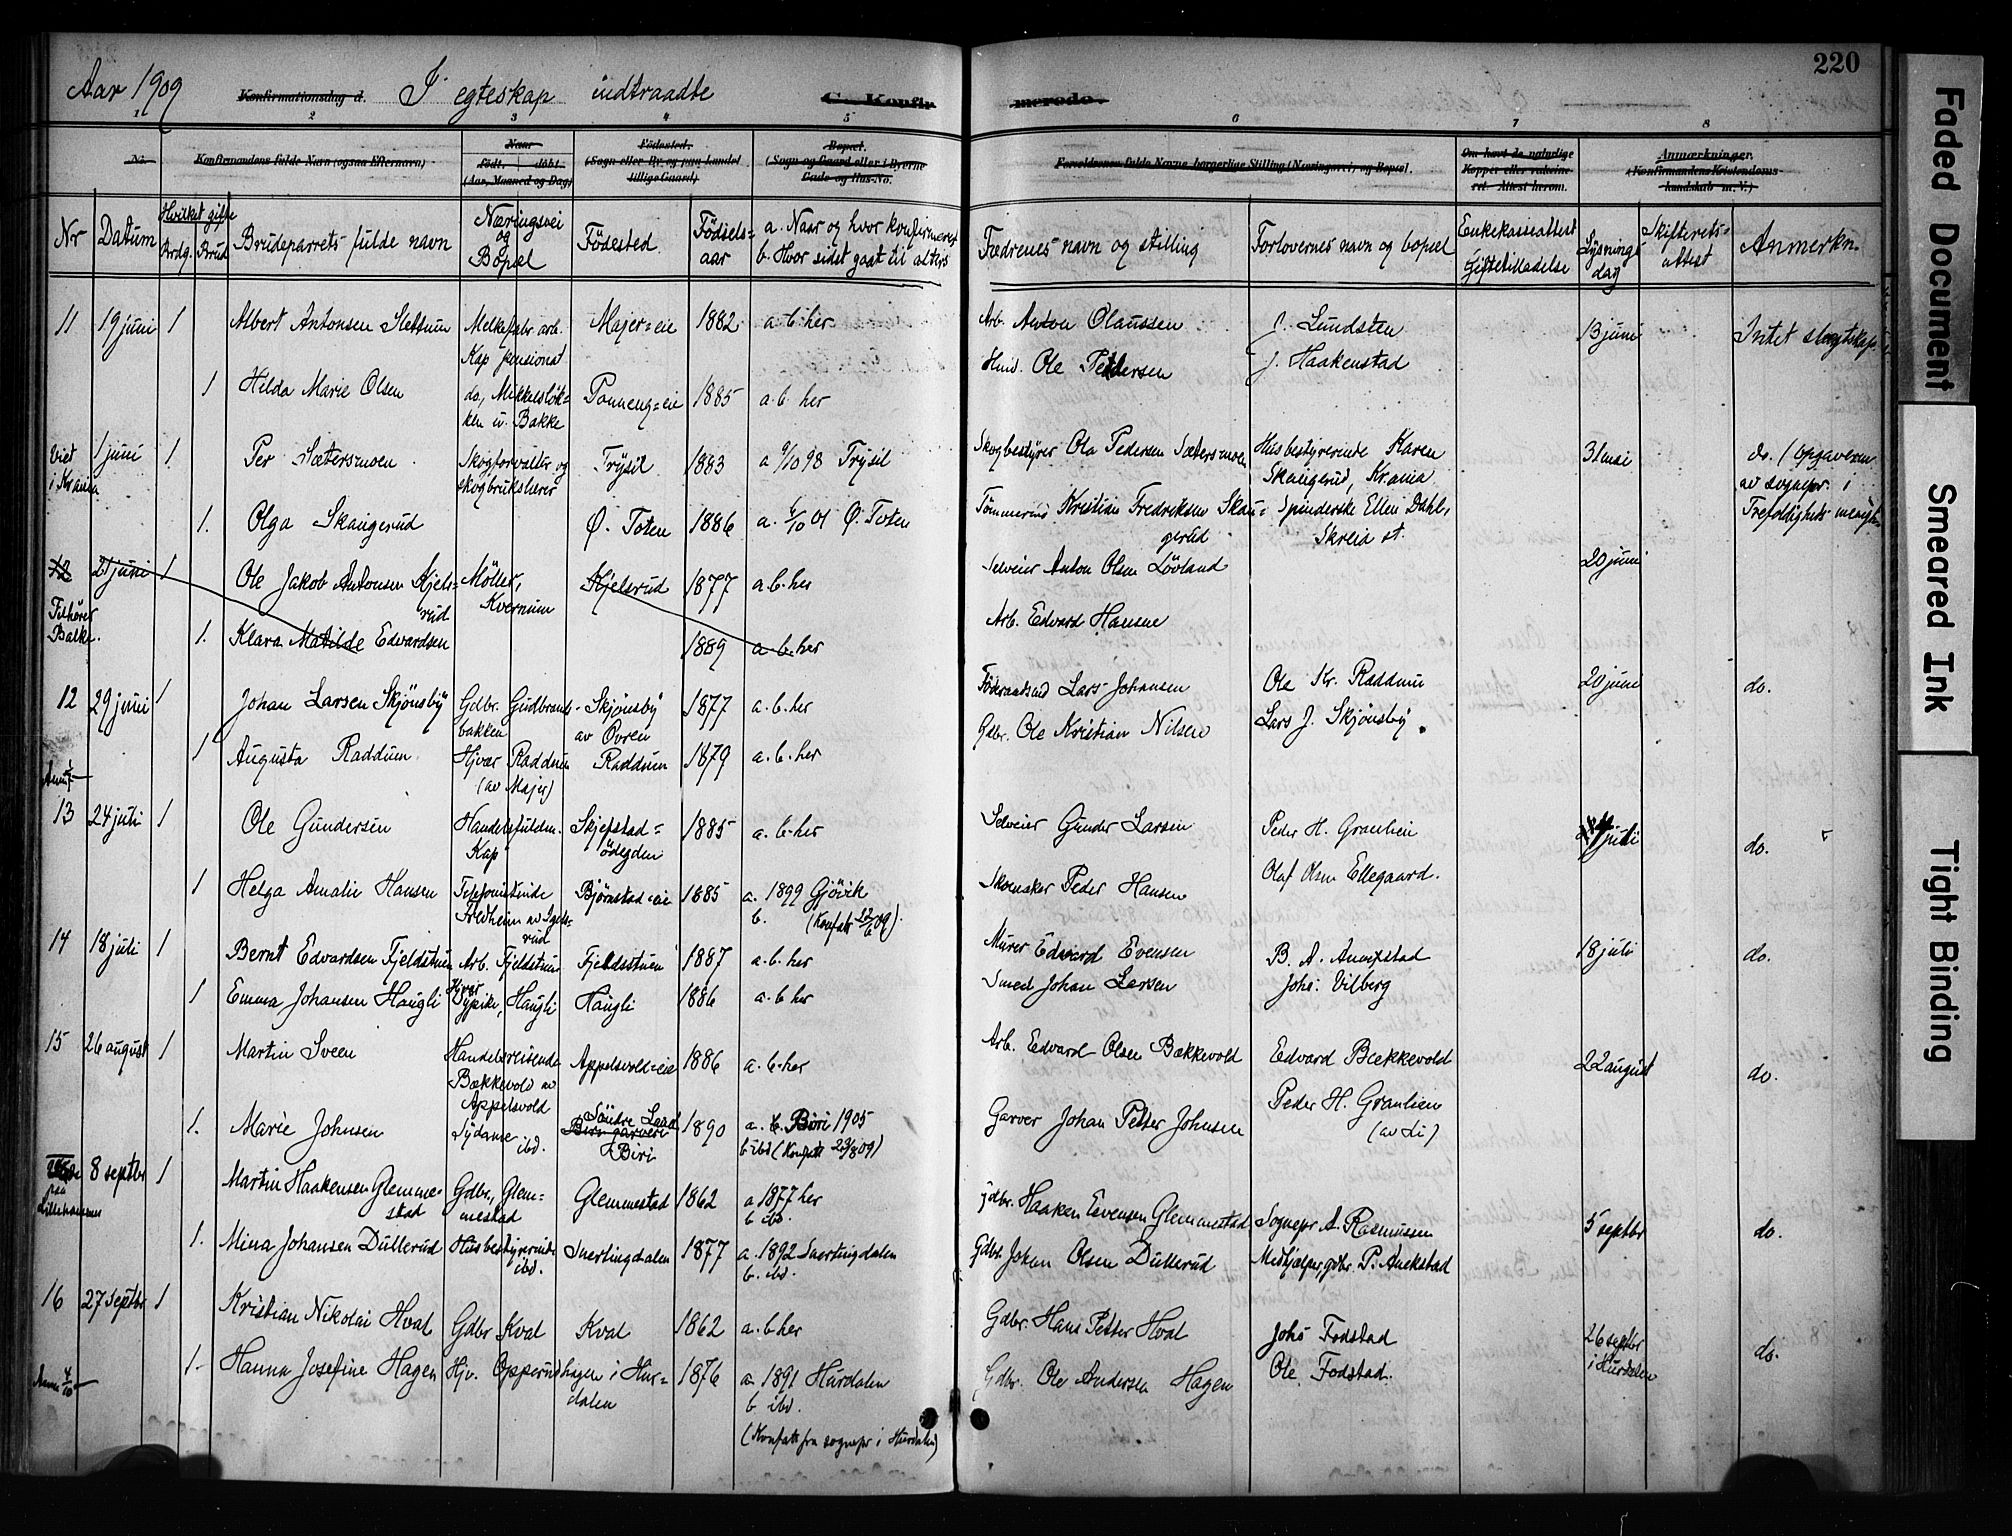 220
Aar 1909 I egteskap indtraadte
Konfirmationsdag d. C. Konfirmerede.
1 2 3 4 5 6 7 8
No. Konfirmandens fulde Navn (ogsaa Efternavn)
Naar født. døbt. (Aar, Maaned og Dag)
Fødested. (Sogn eller By og paa Landet tillige Gaard)
Bopæl. (Sogn og Gaard eller i Byerne Gade og Hus-No.
Forældrenes fulde Navne, borgerlige Stilling (Næringsvei) og Bopæl.
Om havt de naturlige Kopper eller vaksineret. Attest herom.
Anmærkninger. (Konfirmandens Kristendomskundskab m. V.)
Nr Datum Hvilket gifte Brdg. Brud Brudeparrets fulde navn Næringsvei og Bopæl Födested Födsels-aar a. Naar og hvor konfirmeret b. Hvor sidst gaat til alters
Fædrenes navn og stilling Forlovernes navn og bopæl Enkekasseattest Giftetilladelse Lysnings dag Skifterets-attest Anmerkn.
11 19 juni 1 Albert Antonsen Slettum Melkefabr. arb. Kap pensionat Majer=eie 1882 a. b. her Arb. Anton Olaussen J. Lundsten 13 juni Intet slegtskap
1 Hilda Marie Olsen do, Mikkelslök=ken u. Bakke Ponneng=eie 1885 a. b. her Hmd. Ole Pedersen J. Haakenstad
Viet i Kr.ania 1 juni 1. Per Sætersmoen Skogforvalter og skogbrukslærer Trysil 1883 a 9/10 98 Trysil Skogbestyrer Ola Pedersen Sætersmoen Husbestyrerinde Karen Skaugerud, Kr.ania 31 mai do. (opgaven av sognepr. i Trefoldigheds menigh.
1. Olga Skaugerud Ø. Toten 1886 a. 6/10 01 Ø. Toten Tømmermd Kristian Fredriksen Skau=gerud Spinderske Ellen Dahl, Skreia st.
12 Tilhører Balke. 21 juni 1 Ole Jakob Antonsen Kjels=rud Möller, Kvernum Kjelsrud 1877 a. b. her Selveier Anton Olsen Lövland 20 juni
1. Klara Matilde Edvardsen 1889 a. b. her Arb. Edvard Hansen
12 29 juni 1 Johan Larsen Skjönsby Gdbr. Gudbrands-bakken Skjönsby av Øvren 1877 a. b. her Föderaadsmd Lars Johansen Ole Kr. Raddum 20 juni do.
1 Augusta Raddum Hjvær Raddum (av Majer) Raddum 1879 a. b. her Gdbr. Ole Kristian Nilsen Lars J. Skjönsby.
13 24 juli 1 Ole Gundersen Handelsfuldm. Kap Skjefstad=ödegden 1885 a. b. her Selveier Gunder Larsen Peder H. Graulien juli do.
1 Helga Amalie Hansen Telefonistinde Fredheim av Igels-rud Bjørnstad=eie 1885 a. 1899 Gjövik b. (Konfatt 22/6 09). Skomaker Peder Hansen Olaf Olsen Ellegaard.
14 18 juli 1 Bernt Edvardsen Fjeldstuen Arb. Fjeldstuen Fjeldsstuen 1887 a. b. her Murer Edvard Evensen B. A. Anefstad 18 juli do.
1 Emma Johansen Haugli Hjvær Sypike, Haugli Haugli 1886 a. b. her Smed Johan Larsen Johs. Vilberg
15 26 august 1 Martin Sveen Handelsreisende Bækkevold av Appelsvold Appelsvold=eie 1886 a. b. her Arb. Edvard Olsen Bækkevold Edvard Bækkevold 22 august do.
1. Marie Johnsen Sydame ibd. Söndre Laad Biri garveri Biri 1890 a. b. Biri 1905 b ibd (Konfatt 23/8 09) Garver Johan Petter Johnsen Peder H. Graulien (av Li)
paa Lillehammer 8 septbr 1 Martin Haakensen Glemme-stad Gdbr., Glem=mestad Glemmestad 1862 a 1877 her b ibd. Gdbr. Haaken Evensen Glemmestad Sognepr A. Rasmussen 5 septbr do.
1. Mina Johansen Dullerud Husbestyrerinde ibd. Snertingdalen 1877 a. 1892 Snertingdalen b. ibd. Gdbr. Johan Olsen Dullerud Medhjælper, gdbr. P. Anekstad
16 27 septbr 1 Kristian Nikolai Hval Gdbr Kval Kval 1862 a. b her Gdbr. Hans Petter Hval Johs Fodstad 26 septbr i Hurdalen do.
1. Hanna Josefine Hagen Hjv. Opperud Hagen i Hur=dalen 1876 a. 1891 Hurdalen b ibd. (Konfatt fra sognepr i Hurdalen) Gdbr. Ole Andersen Hagen Ole Fodstad.
Faded Document
Smeared Ink
Tight Binding